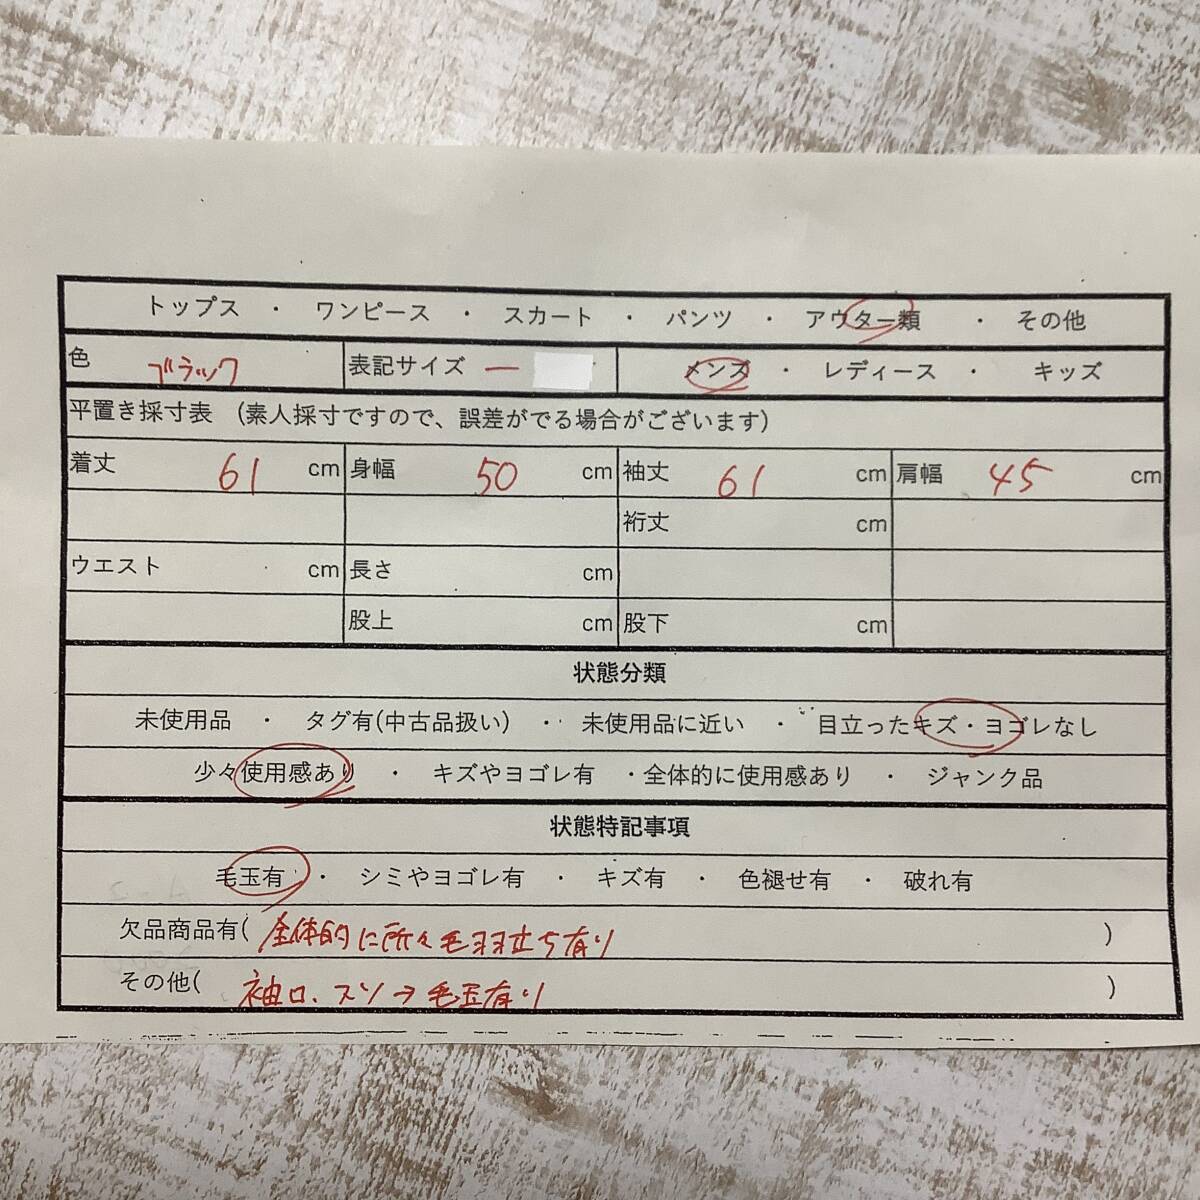 トップス ・ ワンピース ・ スカート ・ パンツ ・ アウター類 ・ その他
色 ブラック 表記サイズ ー メンズ ・ レディース ・ キッズ
平置き採寸表 (素人採寸ですので、誤差がでる場合がございます)
着丈 61 cm 身幅 50 cm 袖丈 61 cm 肩幅 45 cm
裄丈 cm
ウエスト cm 長さ cm
股上 cm 股下 cm
状態分類
未使用品 ・ タグ有(中古品扱い) ・ 未使用品に近い ・ 目立ったキズ・ヨゴレなし
少々使用感あり ・ キズやヨゴレ有 ・全体的に使用感あり ・ ジャンク品
状態特記事項
毛玉有 ・ シミやヨゴレ有 ・ キズ有 ・ 色褪せ有 ・ 破れ有
欠品商品有( 全体的に所々毛羽立ち有り )
その他( 袖口、スソ→毛玉有り )